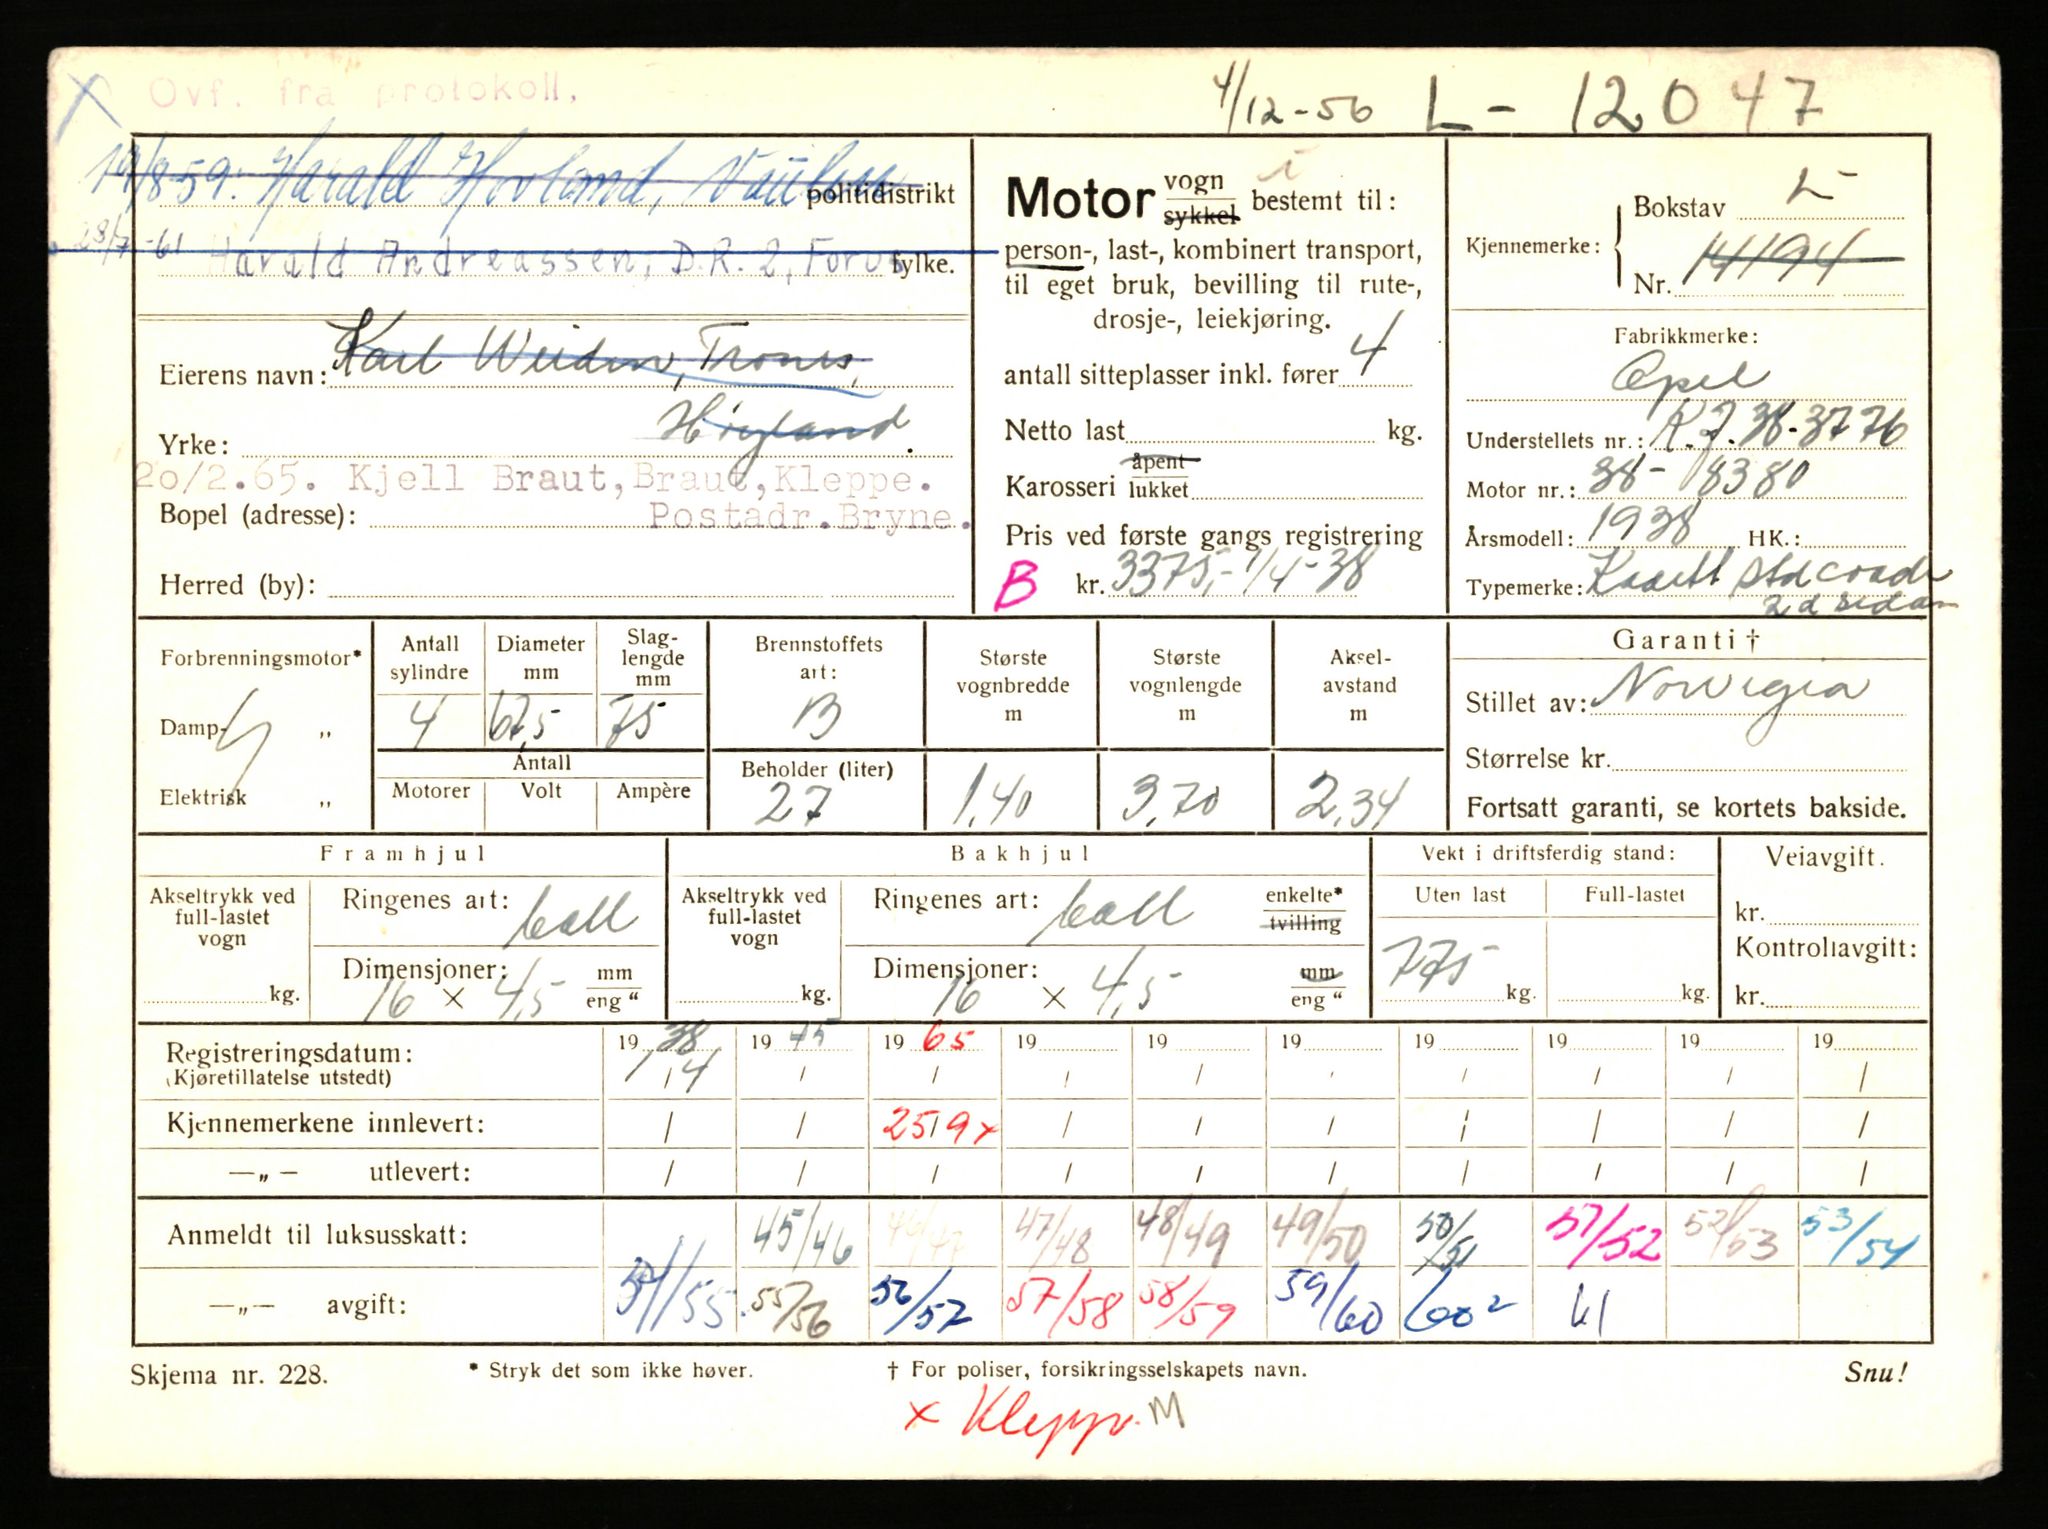 Ovf. fra protokoll,
4/12-56 L - 12047
19/8-59. Harald Hovland,
politidistrikt
28/7-61 Harald Andreassen, D.R. 2, Forus
fylke.
Eierens navn: Karl Weiden, Trones,
Høyland.
Yrke:
20/2.65. Kjell Braut, Braut, Kleppe.
Bopel (adresse): Postadr. Bryne.
Herred (by):
Motor vogn sykkel bestemt til:
person-, last-, kombinert transport,
til eget bruk, bevilling til rute-,
drosje-, leiekjøring.
antall sitteplasser inkl. fører 4
Netto last kg.
Karosseri åpent lukket
Pris ved første gangs registrering
B kr. 3375,- 1/4-38
Kjennemerke: Bokstav L
Nr. 14194
Fabrikkmerke:
Opel
Understellets nr.: R.J.38-3776
Motor nr.: 38-8380
Årsmodell: 1938 HK.:
Typemerke: Kadett std coach
2 d sedan
Forbrenningsmotor*
Damp- „
Elektrisk „
Antall sylindre 4
Diameter mm 67,5
Slag-lengde mm 75
Antall
Motorer Volt Ampère
Brennstoffets art: B
Beholder (liter) 27
Største vognbredde m 1,40
Største vognlengde m 3,70
Aksel-avstand m 2,34
Garanti †
Stillet av: Norvegia
Størrelse kr.
Fortsatt garanti, se kortets bakside.
Framhjul
Akseltrykk ved full-lastet vogn kg.
Ringenes art: ball
Dimensjoner: 16 × 4,5 mm eng "
Bakhjul
Akseltrykk ved full-lastet vogn kg.
Ringenes art: ball enkelte* tvilling
Dimensjoner: 16 × 4,5 mm eng "
Vekt i driftsferdig stand:
Uten last 775 kg.
Full-lastet kg.
Veiavgift.
kr.
Kontrollavgift:
kr.
Registreringsdatum: 19 38 19 45 19 65 19 19 19 19 19 19 19
(Kjøretillatelse utstedt) 1/4 / / / / / / / / /
Kjennemerkene innlevert: / / 25/9 x / / / / / / /
—„— utlevert: / / / / / / / / / /
Anmeldt til luksusskatt: 45/46 46/47 47/48 48/49 49/50 50/51 51/52 52/53 53/54
—„— avgift: 54/55. 55/56 56/57 57/58 58/59 59/60 60² 61
Skjema nr. 228. * Stryk det som ikke høver. † For poliser, forsikringsselskapets navn. Snu!
x Kleppe. M